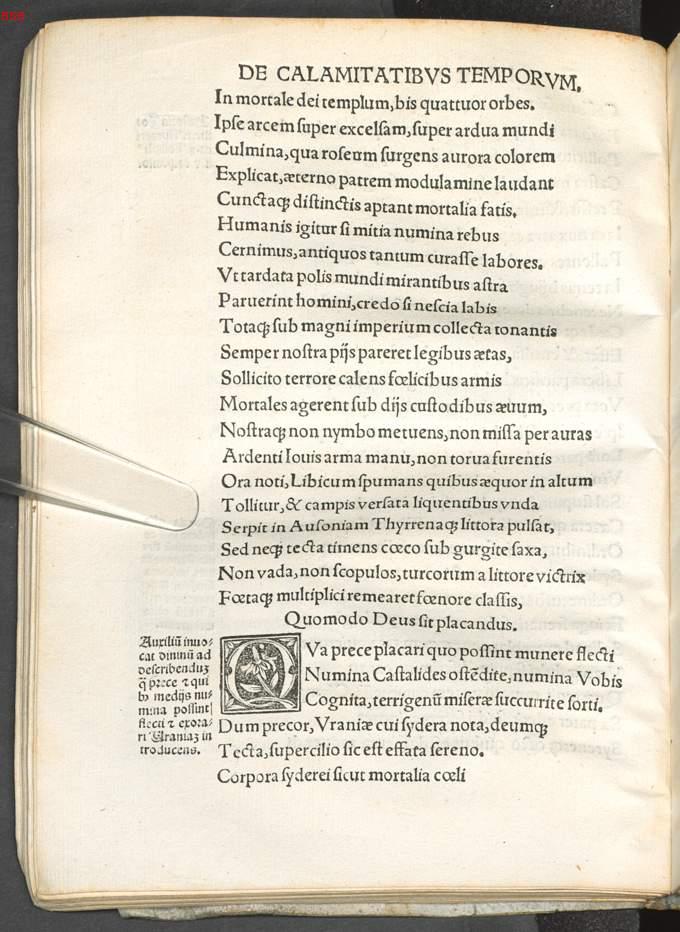 656
DE CALAMITATIBVS TEMPORVM.
In mortale dei templum, bis quattuor orbes.
Ipſe arcem ſuper excelſam, ſuper ardua mundi
Culmina, qua roſeum ſurgens aurora colorem
Explicat, æterno patrem modulamine laudant
Cunctaqꝫ diſtinctis aptant mortalia fatis.
Humanis igitur ſi mitia numina rebus
Cernimus, antiquos tantum curaſſe labores.
Vt tardata polis mundi mirantibus aſtra
Paruerint homini, credo ſi neſcia labis
Totaqꝫ ſub magni imperium collecta tonantis
Semper noſtra pijs pareret legibus ætas,
Sollicito terrore calens fœlicibus armis
Mortales agerent ſub dijs cuſtodibus æuum,
Noſtraqꝫ non nymbo metuens, non miſſa per auras
Ardenti Iouis arma manu, non torua furentis
Ora noti, Libicum ſpumans quibus æquor in altum
Tollitur, & campis verſata liquentibus vnda
Serpit in Auſoniam Thyrrenaqꝫ littora pulſat,
Sed neqꝫ tecta timens cœco ſub gurgite ſaxa,
Non vada, non ſcopulos, turcorum a littore victrix
Fœtaqꝫ multiplici remearet fœnore claſſis,
Quomodo Deus ſit placandus.
QVa prece placari quo poſſint munere flecti
Numina Caſtalides oſtēdite, numina Vobis
Cognita, terrigenū miſeræ ſuccurrite ſorti.
Dum precor, Vraniæ cui ſydera nota, deumqꝫ
Tecta, ſupercilio ſic eſt effata ſereno.
Corpora ſyderei ſicut mortalia cœli
Auxiliū inuo⸗
cat diuinū ad
deſcribenduꝫ
q̄ prece ⁊ qui
bꝰ medijs nu⸗
mina poſſint
flecti ⁊ exora⸗
ri Uraniaꝫ in
troducens.